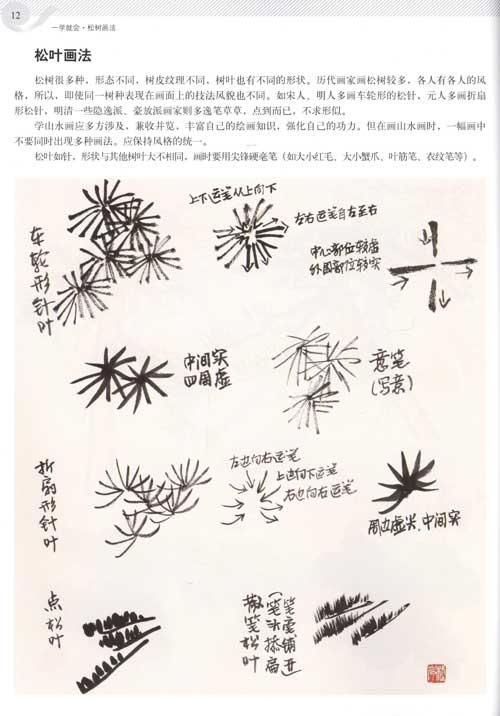 12
一学就会·松树画法
松叶画法
松树很多种，形态不同，树皮纹理不同，树叶也有不同的形状。历代画家画松树较多，各人有各人的风
格，所以，即使同一树种表现在画面上的技法风貌也不同。如宋人、明人多画车轮形的松针，元人多画折扇
形松针，明清一些隐逸派、豪放派画家则多逸笔草草，点到而已，不求形似。
学山水画应多方涉及，兼收并览，丰富自己的绘画知识，强化自己的功力。但在画山水画时，一幅画中
不要同时出现多种画法。应保持风格的统一。
松叶如针，形状与其他树叶大不相同，画时要用尖锋硬毫笔（如大小红毛、大小蟹爪、叶筋笔、衣纹笔等）。
车轮形针叶
上下运笔从上向下
左右运笔自左至右
中心部位较虚
外围部位较实
中间实
四周虚
意笔
（写意）
折扇形针叶
左边向右运笔
上边向下运笔
右边向右运笔
周边虚尖、中间实
点松叶
散笔松叶
（笔头揉扁
笔毫铺开